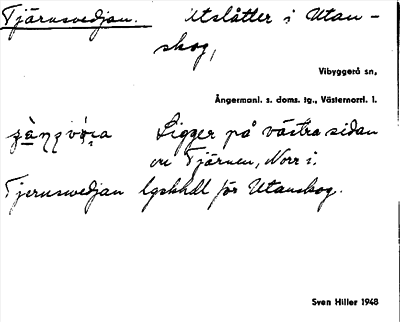 Tjärnsvedjan. Utslåtter i Utan-
skog,
Vibyggerå sn,
Ångermanl. s. doms. tg., Västernorrl. l.
Ligger på västra sidan
om Tjärnen, Norr i.
Tjernsvedjan lgskhdl för Utanskog.
Sven Hiller 1948